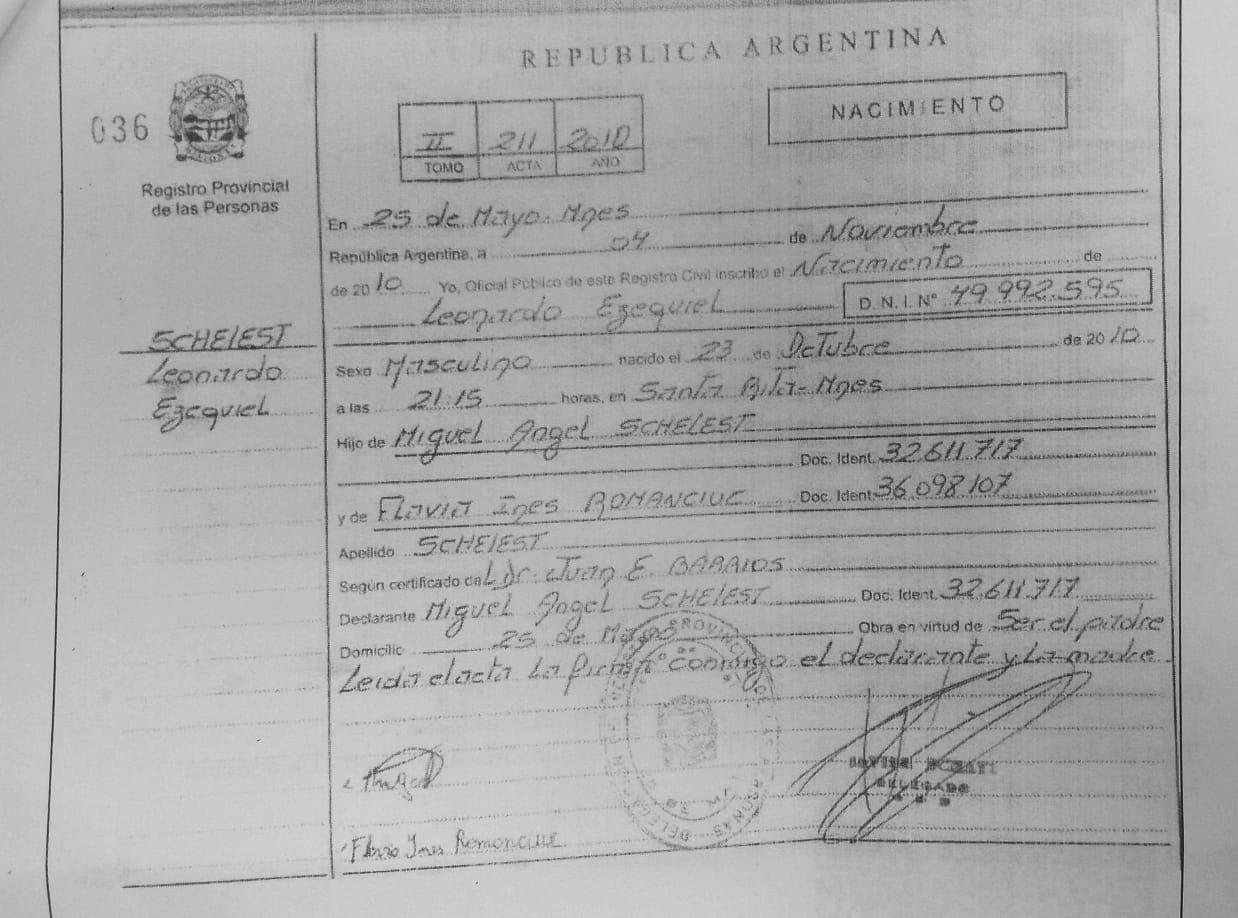 REPUBLICA ARGENTINA
036
NACIMIENTO
II 211 2010
TOMO ACTA AÑO
Registro Provincial
de las Personas
En 25 de Mayo. Mnes
República Argentina, a 04 de Noviembre
de 2010 Yo, Oficial Público de este Registro Civil inscribo el Nacimiento de
Leonardo Ezequiel D. N. I. Nº 49.992.595
SCHELEST
Leonardo
Ezequiel
Sexo Masculino nacido el 23 de Octubre de 2010
a las 21:15 horas, en Santa Rita-Mnes
Hijo de Miguel Angel SCHELEST
Doc. Ident. 32.611.717
y de Flavia Ines ROMANCIUC Doc. Ident. 36.098.107
Apellido SCHELEST
Según certificado de Dr. Juan E. BARRIOS
Declarante Miguel Angel SCHELEST Doc. Ident. 32.611.717
Domicilio 25 de Mayo Obra en virtud de Ser el padre
Leida el acta La firman conmigo el declarante y La madre
DELEGADO
Flavia Ines Romanciuc